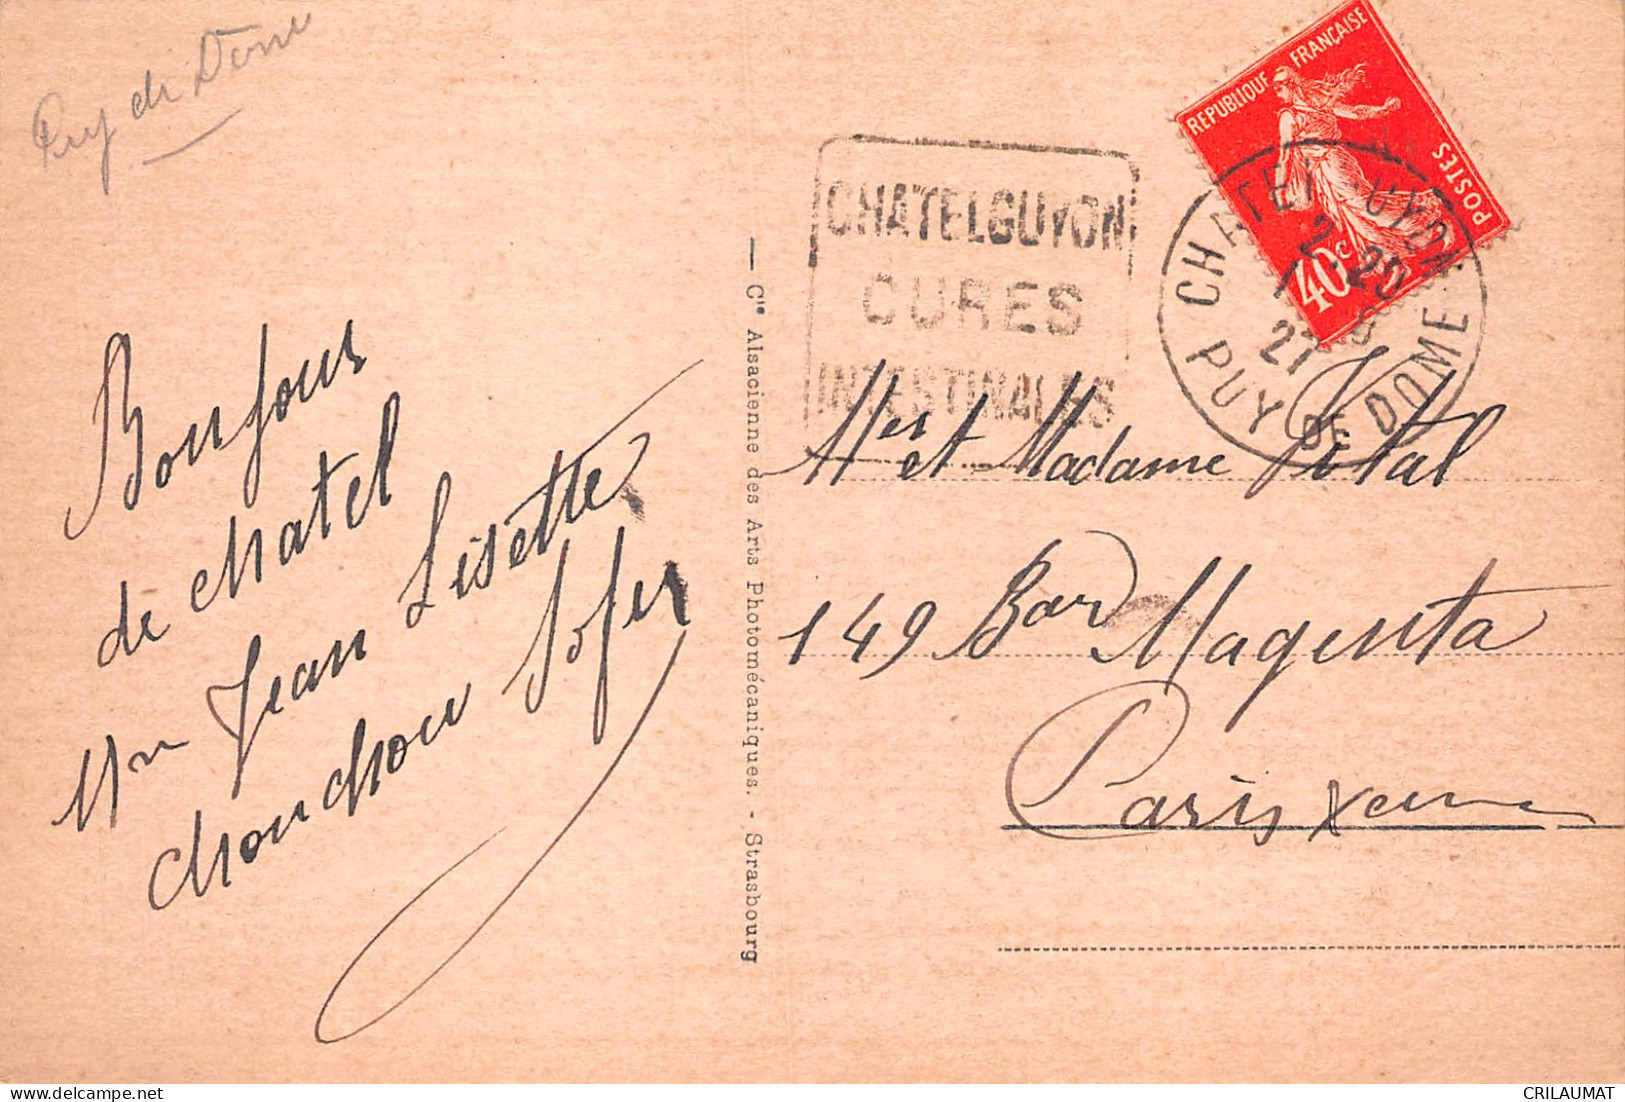 Puy de Dome
Bonjour
de chatel
Jean Lisette
chouchou
Cie Alsacienne des Arts Photomécaniques. - Strasbourg
CHATELGUYON
CURES
INTESTINALES
REPUBLIQUE FRANÇAISE
POSTES
40c
CHATELGUYON
PUY DE DOME
27
Mer et Madame Vital
149 Bar Magenta
Paris Xeme
delcampe.net
CRILAUMAT